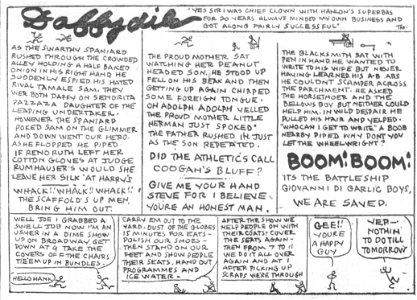 Daffydils
"YES SIR I WAS CHIEF CLOWN WITH HANLON'S SUPERBAS
FOR 30 YEARS ALWAYS MINDED MY OWN BUSINESS AND
GOT ALONG PAIRLY SUCCESSFUL"
AS THE SWARTHY SPANIARD
RUSHED THROUGH THE CROWDED
ALLEY HOLDING A HALF BAKED
ONION IN HIS RIGHT HAND HE
SUDDENLY ESPIED HIS HATED
RIVAL TAMALE SAM. THEY
WERE BOTH DAFFY ON SENORITA
PAZZAZA DAUGHTER OF THE
LEADING UNDERTAKER.
HOWEVER THE SPANIARD
POKED SAM ON THE GLIMMER
AND DOWN WENT OUR HERO.
AS HE FLOPPED HE PIPED
IF RENO RUTH LEFT HER
COTTON GLOVES AT JUDGE
RUMHAUSER'S WOULD SHE
LEAVE HER SILK AT HARRY'S
WHACK!! WHACK!! WHACK!!
THE SCAFFOLD'S UP MEN,
BRING HIM OUT.
THE PROUD MOTHER SAT
WATCHING HER PEANUT
HEADED SON. HE STOOD UP
FELL ON HIS BEAK AND THEN
GETTING UP AGAIN CHIRPED
SOME FOREIGN TONGUE.
OH ADOLPH ADOLPH YELLED
THE PROUD MOTHER LITTLE
HERMAN JUST SPOKE"
THE FATHER RUSHED IN JUST
AS THE SON REPEATED.
DID THE ATHLETICS CALL
COOGAN'S BLUFF?
GIVE ME YOUR HAND
STEVE FOR I BELIEVE
YOU'RE AN HONEST MAN.
THE BLACKSMITH SAT WITH
PEN IN HAND. HE WANTED TO
WRITE TO HIS WIFE BUT NEVER
HAVING LEARNED HIS A-B ABS
HE COULDN'T SCAMPER ACROSS
THE PARCHMENT. HE ASKED
THE HORSESHOER AND THE
BELLOWS BOY BUT NEITHER COULD
HELP HIM. IN WILD DESPAIR HE
PULLED HIS HAIR AND YELPED.
"WHO CAN I GET TO WRITE" A BOOB
NEARBY PIPED WHY DON'T YOU
LET THE WHEELWRIGHT?
BOOM! BOOM!
ITS THE BATTLESHIP
GIOVANNI DI GARLIC BOYS,
WE ARE SAVED.
WELL JOE I GRABBED A
SWELL JOB NOW I'M AN
USHER IN A DIME SHOW
UP ON BROADWAY GET
DOWN AT 9 TAKE THE
COVERS OF THE CHAIRS
TIE EM UP IN BUNDLES
HELLO HANK
CARRY EM OUT TO THE
YARD. DUST OF THE GLOBES
15 MINUTES FOR EATS-
POLISH OUR SHOES-
THEN STAND ON OUR
FEET AND SHOW PEOPLE
THEIR SEATS. HAND OUT
PROGRAMMES AND
ICE WATER-
AFTER THE SHOW WE
HELP PEOPLE ON WITH
THEIR COATS COVER
THE SEATS AGAIN-
THEN FROM 7 TO 11
WE DO IT ALL OVER
AGAIN AND AT 1
AFTER PICKING UP
SCRAPS WERE THROUGH
GEE!!
YOU'RE
A HAPPY
GUY
YEP-
NOTHIN
TO DO TILL
TOMORROW